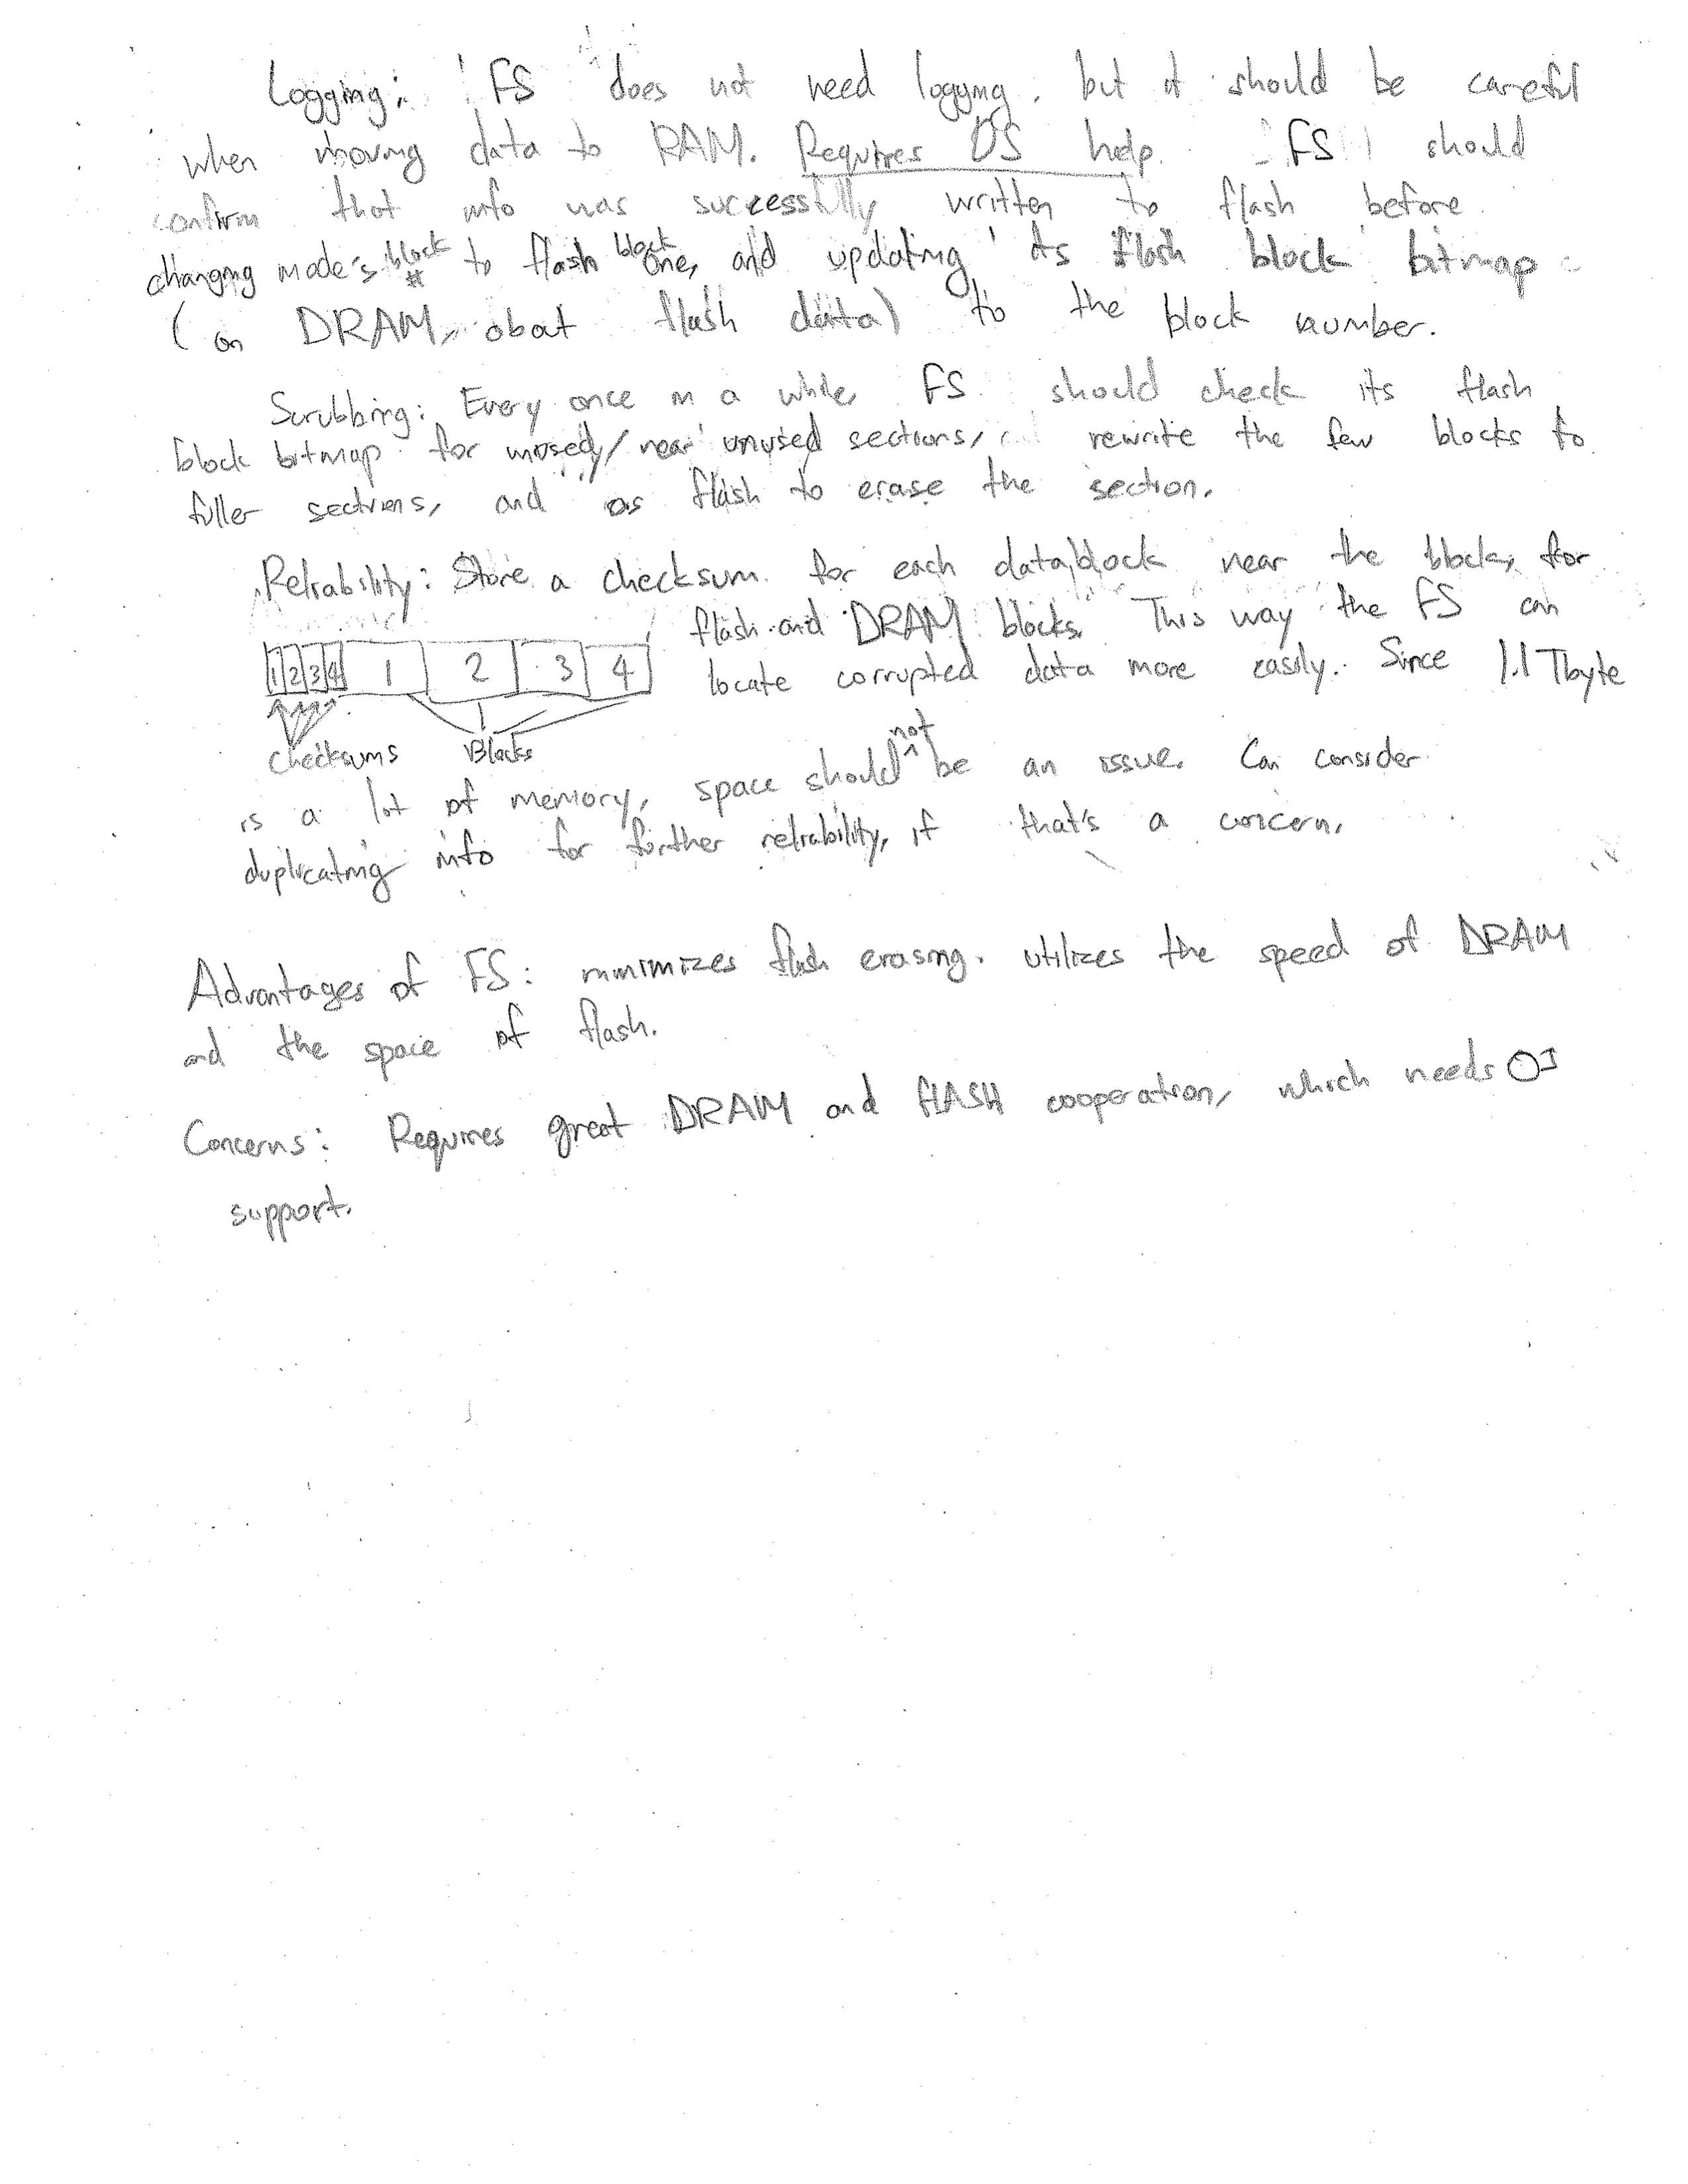 Logging: FS does not need logging, but it should be careful
when moving data to RAM. Requires OS help. FS should
confirm that info was successfully written to flash before
changing inode's block # to flash block one, and updating its flash block bitmap
(on DRAM, about flash data) to the block number.
Scrubbing: Every once in a while, FS should check its flash
block bitmap for unused/near unused sections, rewrite the few blocks to
fuller sections, and as flash to erase the section.
Reliability: Store a checksum for each data block near the blocks, for
flash and DRAM blocks. This way the FS can
1 2 3 4 1 2 3 4 locate corrupted data more easily. Since 1.1 Tbyte
Checksums Blocks
is a lot of memory, space should not be an issue. Can consider
duplicating info for further reliability, if that's a concern.
Advantages of FS: minimizes flash erasing. utilizes the speed of DRAM
and the space of flash.
Concerns: Requires great DRAM and flASH cooperation, which needs OS
support.